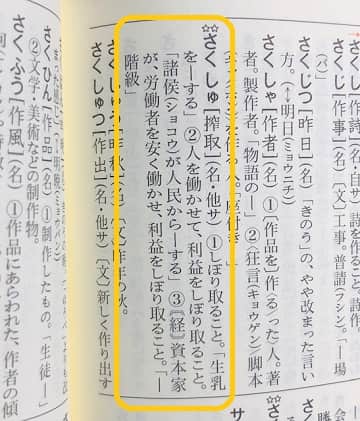 さくし[作詩](名・自サ)詩を作ること。詩作
さくじ[作事](名)〔文〕工事。普請(フシン)。「―場
(バ)」
さくじつ[昨日](名)「きのう」の、やや改まった言い
方。(↑↓明日(ミョウニチ)
さくしゃ[作者](名)①〔作品を〕作(る/った)人。著
者。製作者。「物語の―」②〔狂言(キョウゲン)脚本
☆☆さくしゅ[搾取](名・他サ)①しぼり取ること。「生乳
を―する」②人を働かせて、利益をしぼり取ること。
「諸侯(ショコウ)が人民から―する」③〘経〙資本家
が、労働者を安く働かせ、利益をしぼり取ること。「―
階級」
[昨秋](名)〔文〕昨年の秋。
さくしゅつ[作出](名・他サ)〔文〕新しく作り出す
さくひん[作品](名)①制作したもの。「生徒―」
②文学・美術などの制作物。
さくふう[作風](名)①作品にあらわれた、作者の傾